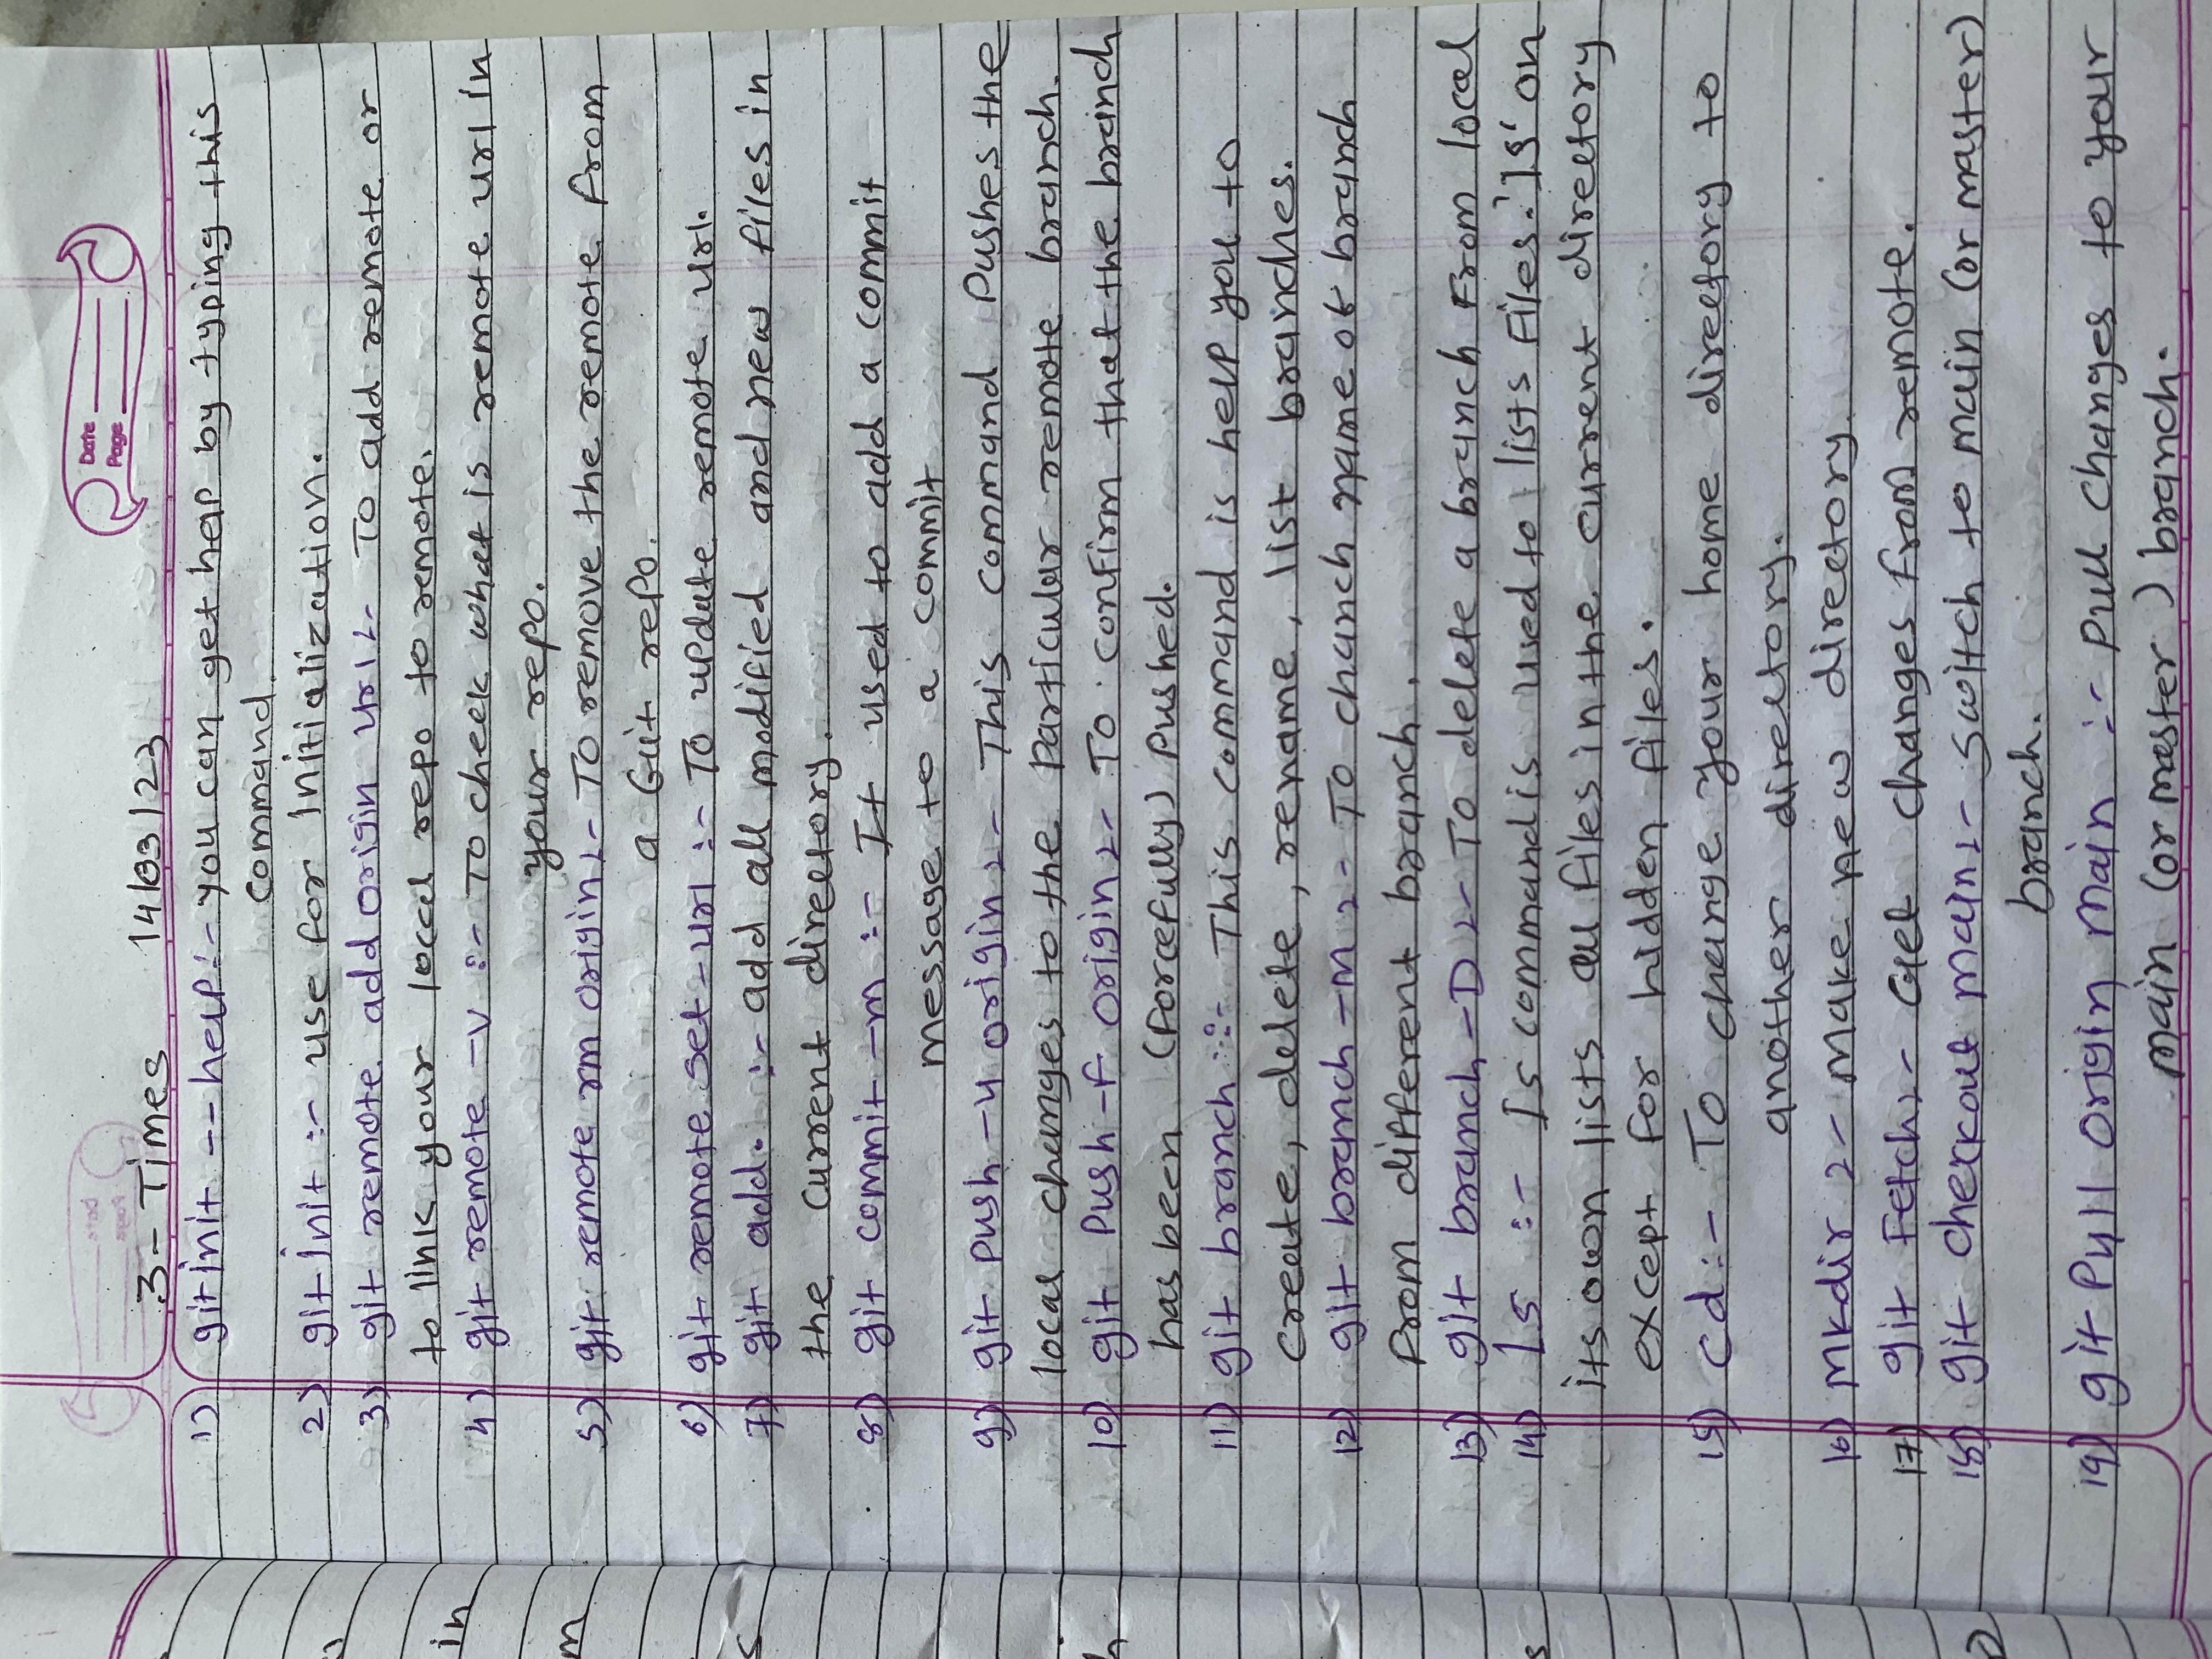 Date
Page
3- Times 14/03/23
1) git init -- help:- you can get help by typing this
command.
2) git init :- use for Initialization.
3) git remote add origin url:- To add remote or
to link your local repo to remote.
4) git remote -v :- To check what is remote url in
your repo.
5) git remote rm origin:- To remove the remote from
a Git repo.
6) git remote set-url :- To update remote url.
7) git add. :- add all modified and new files in
the current directory.
8) git commit -m :- It used to add a commit
message to a commit
9) git push -u origin:- This command Pushes the
local changes to the Particular remote branch.
10) git Push -f origin:- To confirm that the branch
has been (forcefully) Pushed.
11) git branch :- This command is help you to
create, delete, rename, list branches.
12) git branch -m :- To chanch name of branch
from different branch.
13) git branch -D :- To delete a branch From local
14) ls :- Is command is used to lists Files. 'ls' on
its own lists all files in the current directory
except for hidden files.
15) cd:- To change your home directory to
another directory.
16) Mkdir :- Make new directory.
17) git Fetch:- Get changes from remote.
18) git checkout main:- switch to main (or master)
branch.
19) git Pull Origin Main :- Pull Changes to your
main (or master) branch.